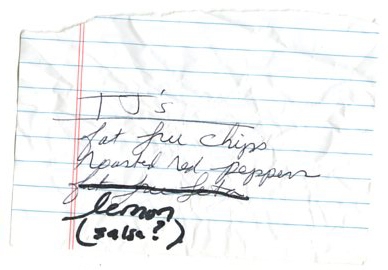 TJ's
fat free chips
roasted red peppers
fat free feta
lemon
(salsa?)